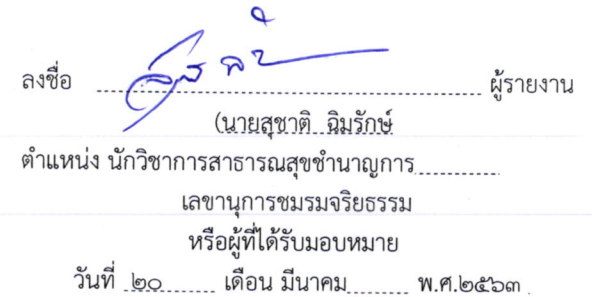 ลงชื่อ ........................................................ ผู้รายงาน
(นายสุชาติ ฉิมรักษ์
ตำแหน่ง นักวิชาการสาธารณสุขชำนาญการ............
เลขานุการชมรมจริยธรรม
หรือผู้ที่ได้รับมอบหมาย
วันที่ ๒๐......... เดือน มีนาคม......... พ.ศ.๒๕๖๓